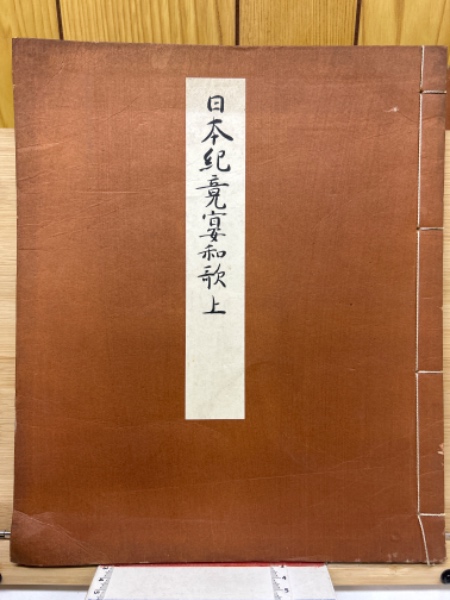 日本紀竟宴和歌上